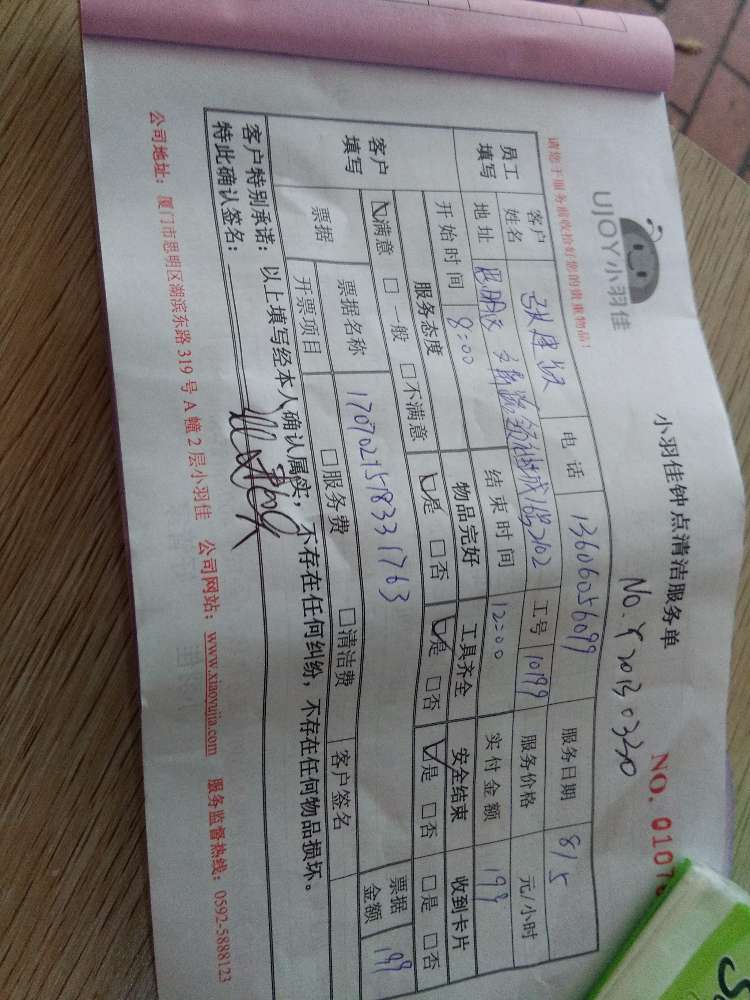 UJOY小羽佳
小羽佳钟点清洁服务单
NO. 0107
No. Y2013 0330
请您于服务前收拾好您的贵重物品!
员工填写 客户姓名 电话 13606056099 服务日期 8/5
地址 思明区 2102 工号 10199 服务价格 元/小时
开始时间 8:00 结束时间 12:00 实付金额 199
客户填写 服务态度 物品完好 工具齐全 安全结束 收到卡片
☑满意 □一般 □不满意 ☑是 □否 ☑是 □否 ☑是 □否 □是 □否
票据 票据名称 17070215783331763 票据金额 199
开票项目 □服务费 □清洁费 客户签名
客户特别承诺:以上填写经本人确认属实,不存在任何纠纷,不存在任何物品损坏。
特此确认签名:
公司地址:厦门市思明区湖滨东路 319 号 A 幢 2 层小羽佳 公司网站:www.xiaoyujia.com 服务监督热线:0592-5888123